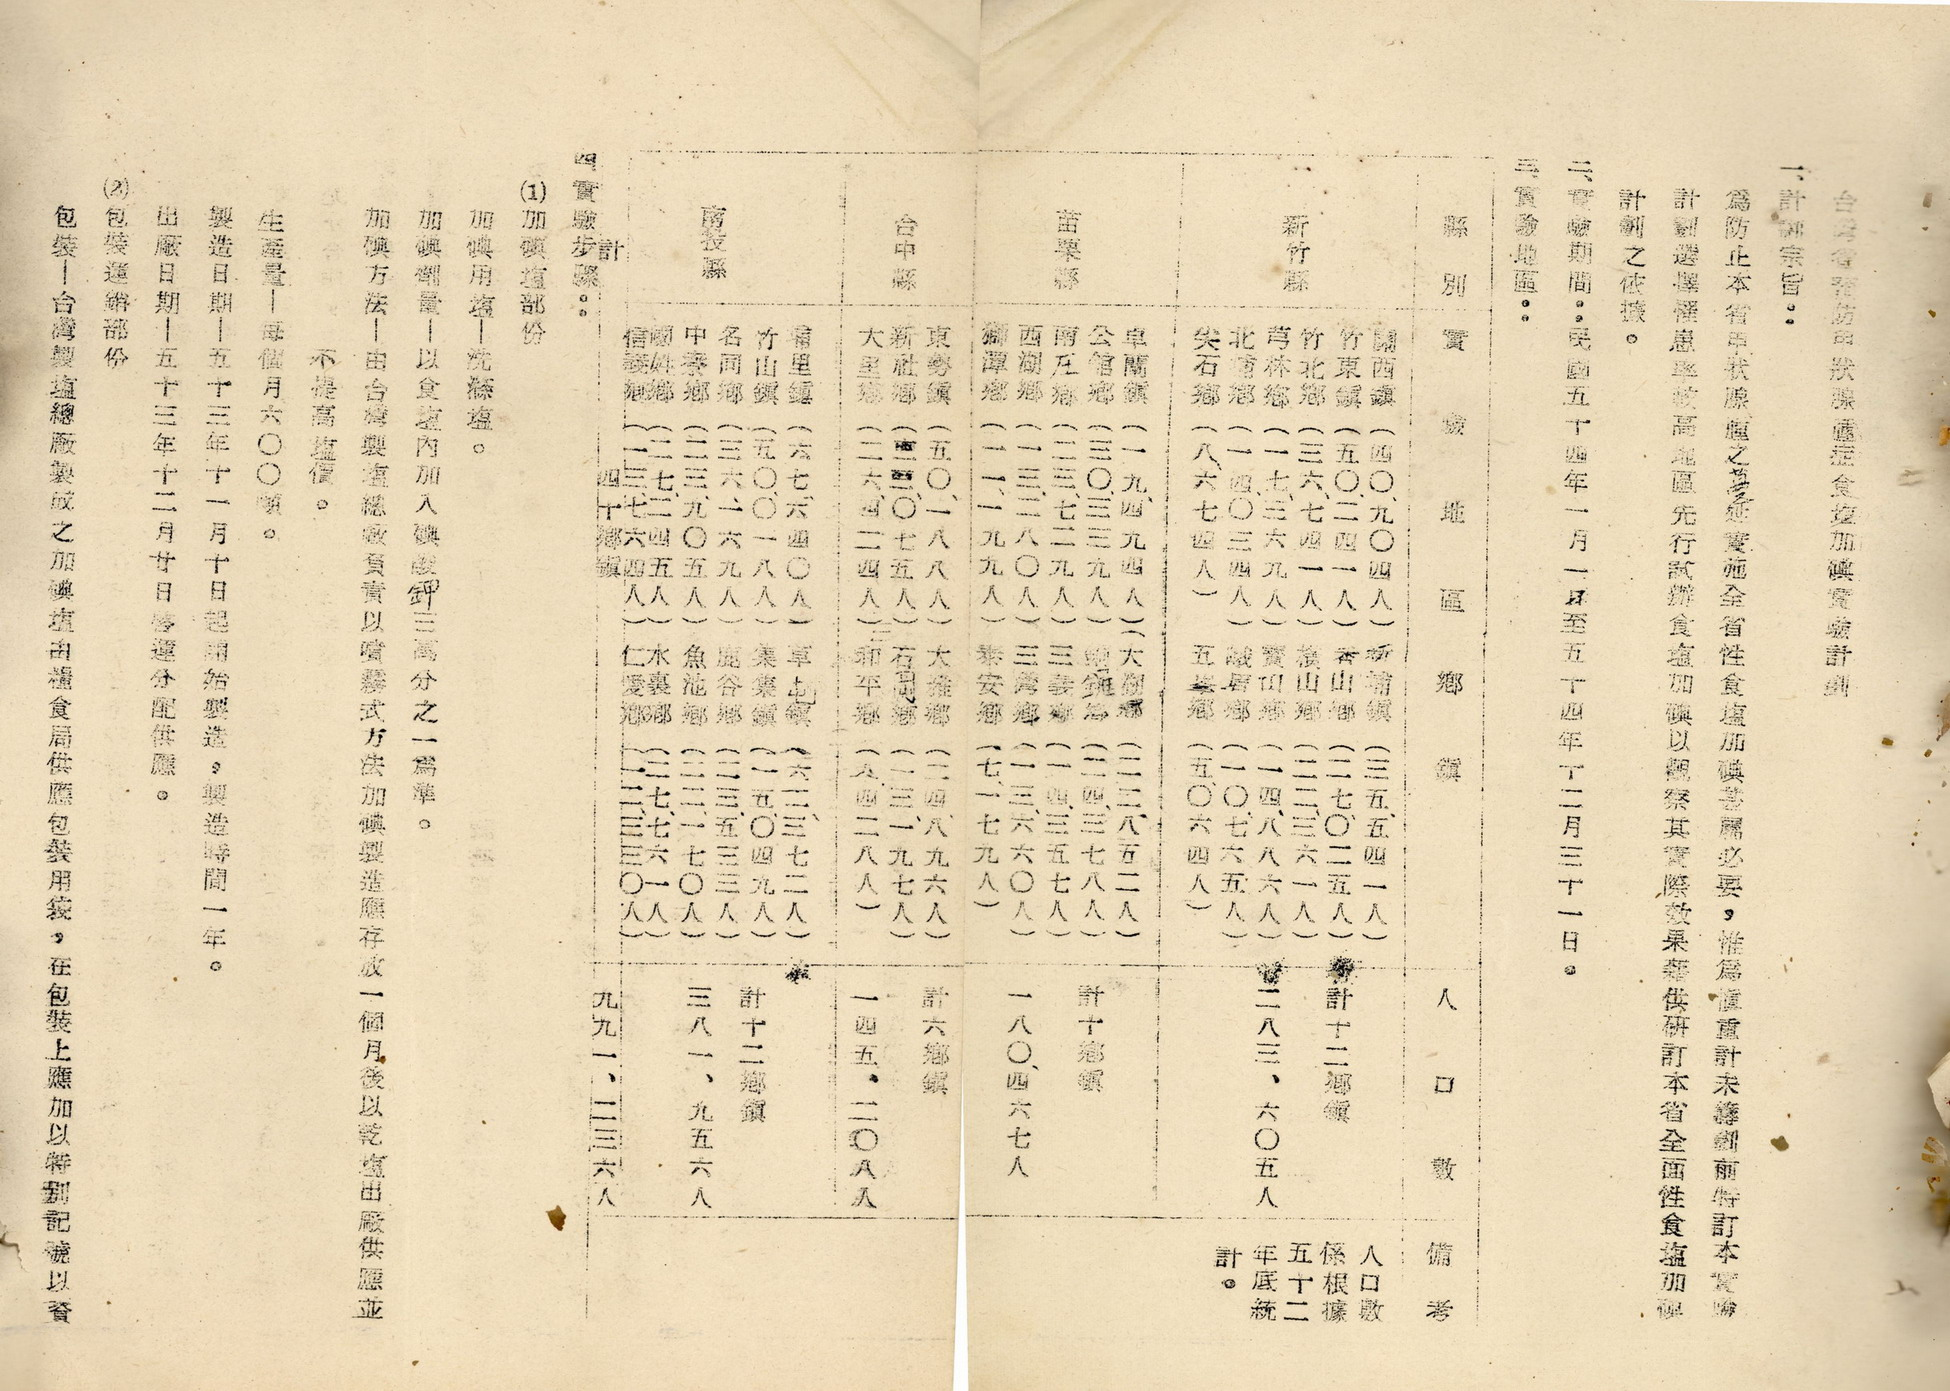 台灣省預防甲狀腺腫症食塩加碘實驗計劃
一、計劃宗旨：
為防止本省甲狀腺腫之蔓延實施全省性食塩加碘甚屬必要，惟為慎重計未籌劃前特訂本實驗
計劃選擇罹患率較高地區先行試辦食塩加碘以觀察其實際效果藉供研訂本省全面性食塩加碘
計劃之依據。
二、實驗期間：民國五十四年一月一日至五十四年十二月三十一日。
三、實驗地區：
縣別 實驗地區鄉鎮 人口數 備考
新竹縣
關西鎮（四〇、九〇四人）新埔鎮（三五、五四一人）
竹東鎮（五〇、二四一人）香山鄉（二七、〇二五人）
竹北鄉（三六、七四一人）橫山鄉（二二、三六一人）
芎林鄉（一七、三六九人）寶山鄉（一四、八八六人）
北埔鄉（一四、〇三四人）峨眉鄉（一〇、七六五人）
尖石鄉（八、六七四人）五峯鄉（五、〇六四人）
計十二鄉鎮
二八三、六〇五人
人口數
係根據
五十二
年底統
計。
苗栗縣
卓蘭鎮（一九、四九四人）大湖鄉（二二、八五二人）
公館鄉（三〇、三三九人）鄉（二四、三七八人）
南庄鄉（二三、七二九人）三義鄉（一四、三五七人）
西湖鄉（一三、二八〇人）三灣鄉（一三、六六〇人）
獅潭鄉（一一、一九九人）泰安鄉（七、一七九人）
計十鄉鎮
一八〇、四六七人
台中縣
東勢鎮（五〇、一八八人）大雅鄉（二四、八九六人）
新社鄉（〇、七五人）石岡鄉（一三、一九七人）
大里鄉（二六、四二四人）和平鄉（八、四二八人）
計六鄉鎮
一四五、二〇八人
南投縣
埔里鎮（六七、六四〇人）草屯鎮（六三、三七二人）
竹山鎮（五〇、〇一八人）集集鎮（一五、〇四九人）
名間鄉（三六、一六九人）鹿谷鄉（二三、五三三人）
中寮鄉（二三、九〇五人）魚池鄉（二二、一七〇人）
國姓鄉（二七、二四五人）水裏鄉（二七、七六一人）
信義鄉（一三、七六四人）仁愛鄉（一一、三三〇人）
計十二鄉鎮
三八一、九五六人
計 四十鄉鎮 九九一、二三六人
四實驗步驟：
(1)加碘塩部份
加碘用塩—洗滌塩。
加碘劑量—以食塩內加入碘酸鉀三萬分之一為準。
加碘方法—由台灣製塩總廠負責以噴霧式方法加碘製造應存放一個月後以乾塩出廠供應並
不提高塩價。
生產量—每個月六〇〇噸。
製造日期—五十三年十一月十日起開始製造，製造時間一年。
出廠日期—五十三年十二月廿日啓運分配供應。
(2)包裝運銷部份
包裝—台灣製塩總廠製成之加碘塩由糧食局供應包裝用袋，在包裝上應加以特別記號以資